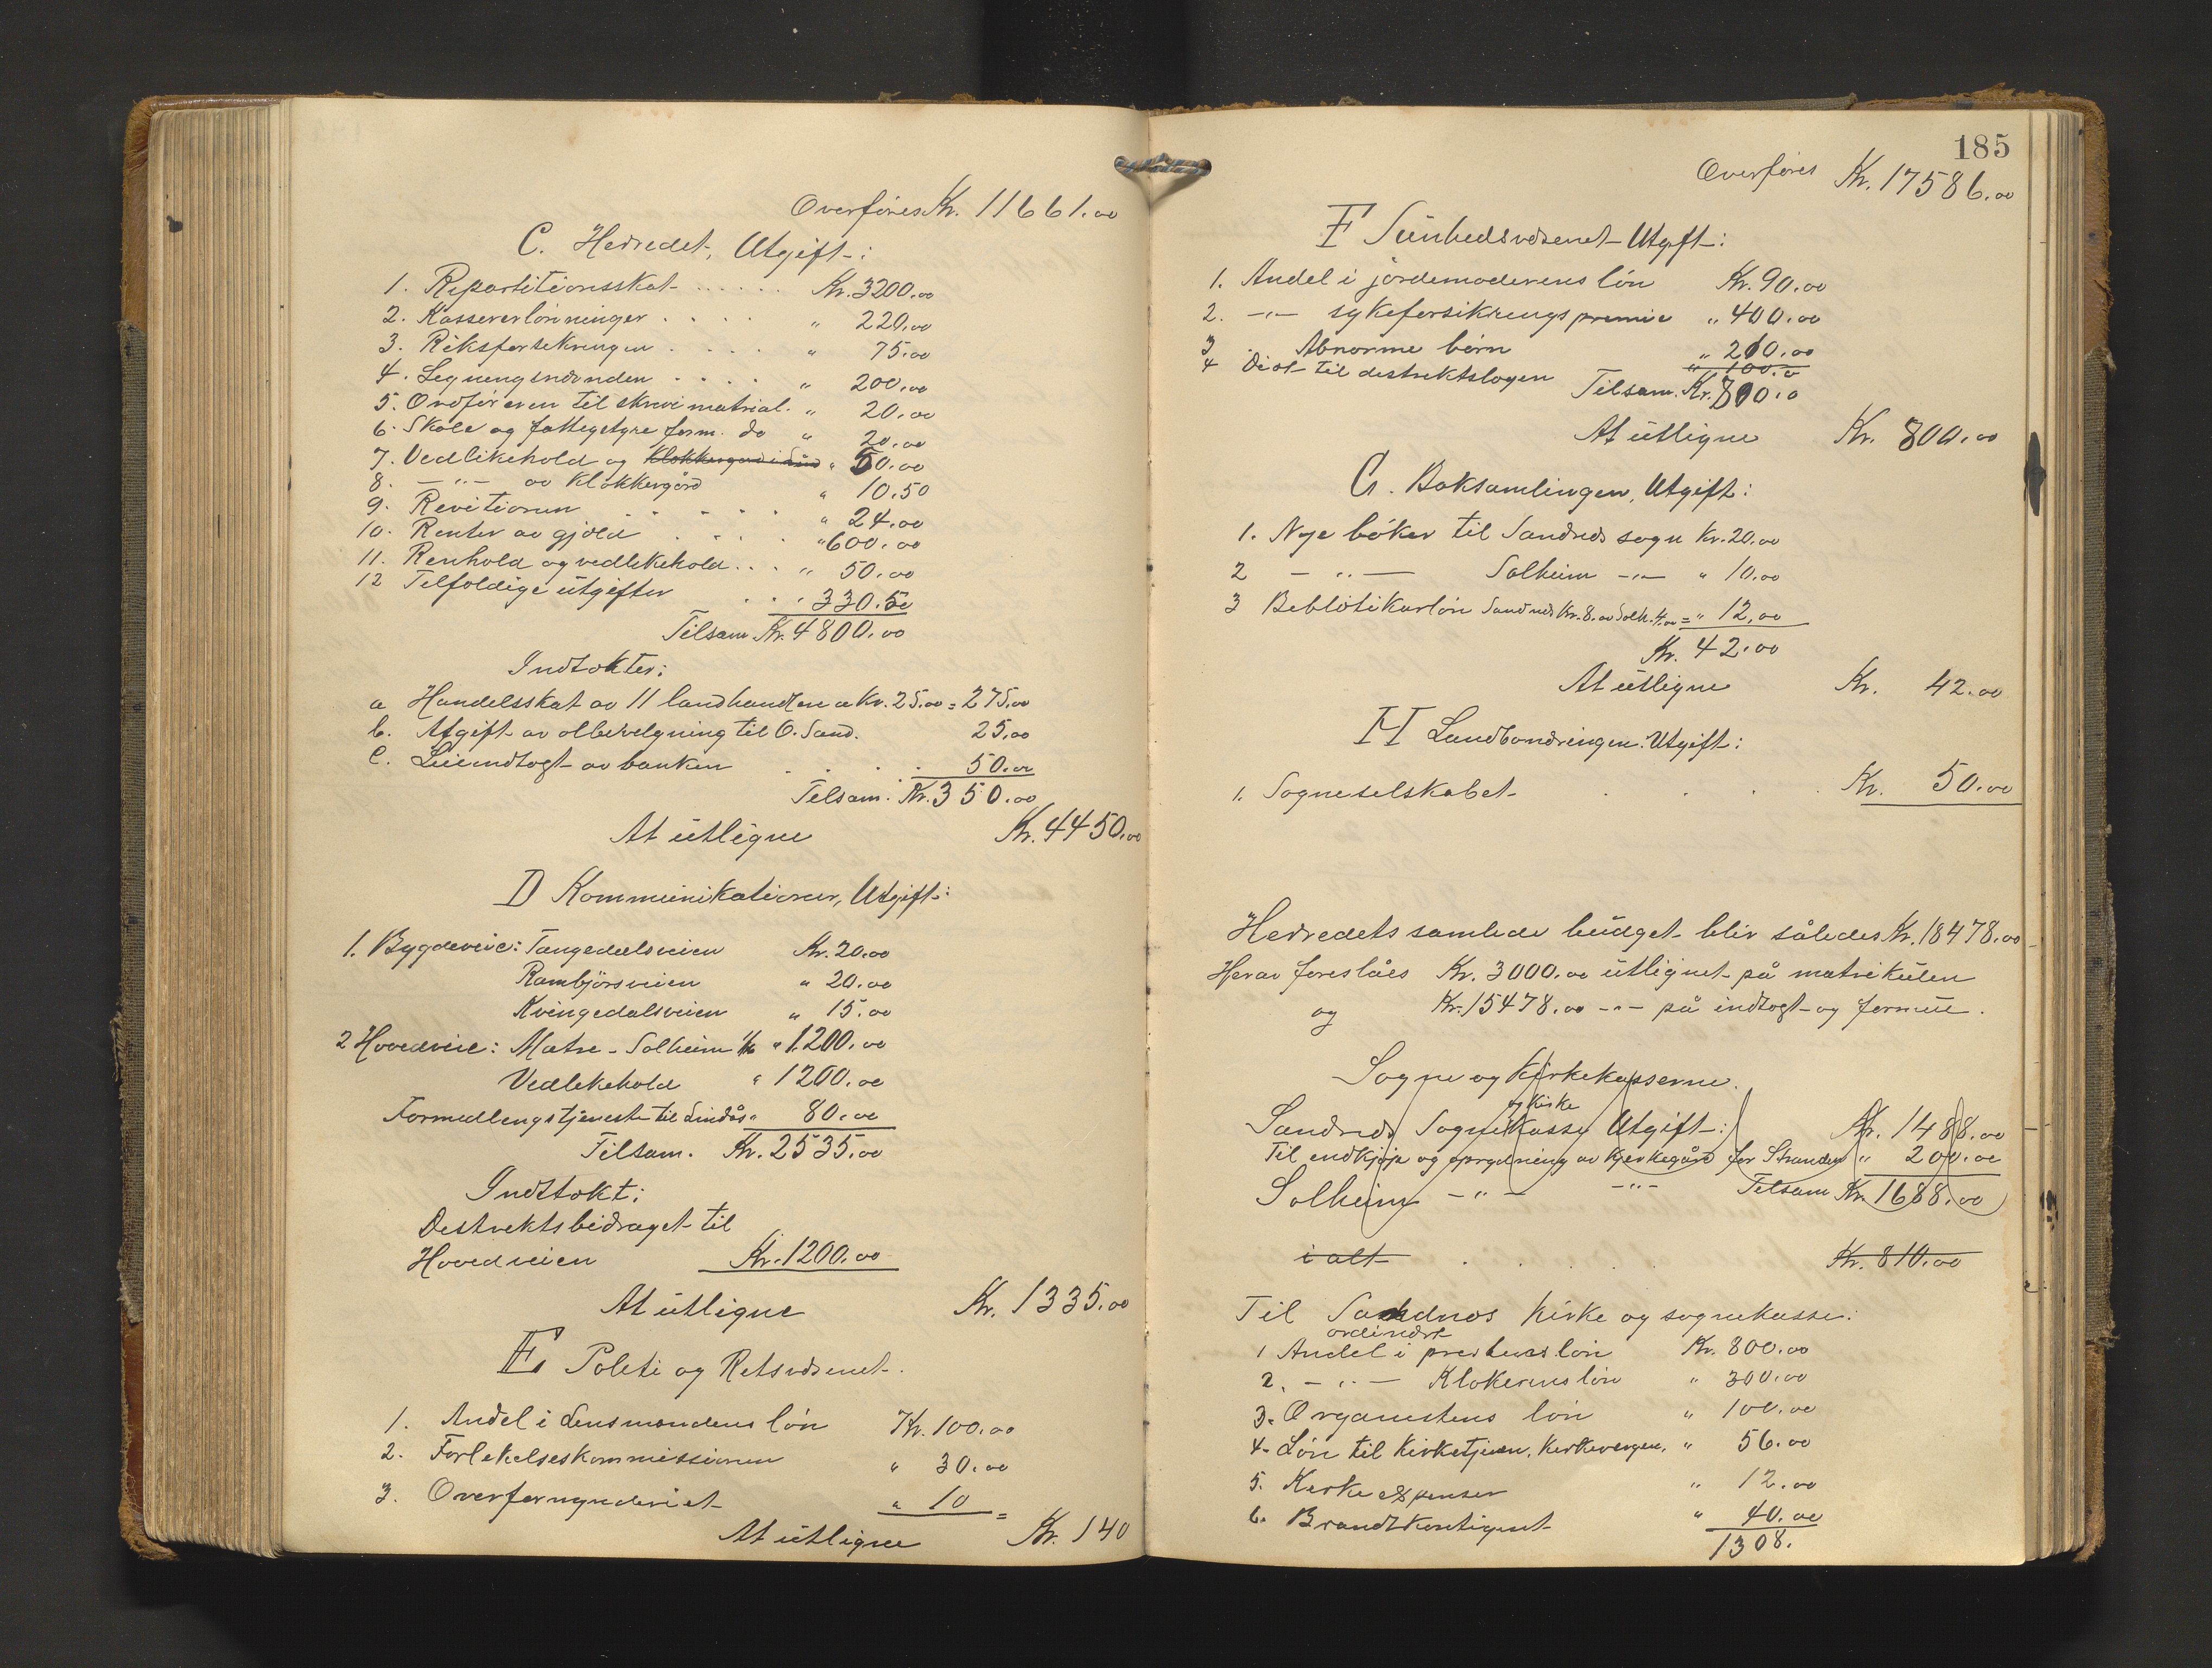 Overføres Kr. 11661.00
C. Herredet, Utgift:
1. Repartitionsskat ..... Kr. 3200.00
2. Kassererlønninger .... " 220.00
3. Riksforsikringen .... " 75.00
4. Ligningsnævnden .... " 200.00
5. Ordføreren til skrivematrial. " 20.00
6. Skole og fattigstyre form. do " 20.00
7. Vedlikehold og Klokkergard i Sand " 50.00
8. -"- av Klokkergård " 10.50
9. Revitionen ..... " 24.00
10. Renter av gjæld .... " 600.00
11. Renhold og vedlikehold ... " 50.00
12 Tilfældige utgifter ... 330.50
Tilsam. Kr. 4800.00
Indtækter:
a Handelsskat av 11 landhandlere a Kr. 25.00 = 275.00
b. Afgift av ølbevilgning til O. Sand. 25.00
c. Leieindtægt av banken .... 50.00
Tilsam. Kr. 350.00
At utligne Kr. 4450.00
D Kommunikationer, Utgift:
1. Bygdeveie: Tangedalsveien Kr. 20.00
Rambjørsveien " 20.00
Kvingedalsveien " 15.00
2 Hovedveie: Matre - Solheim 1/6 " 1200.00
Vedlikehold " 1200.00
Formedlingstjeneste til Lindås " 80.00
Tilsam. Kr. 2535.00
Indtækt:
Destriktsbidraget til
Hovedveien Kr. 1200.00
At utligne Kr. 1335.00
E Politi og Retsvæsenet.
1. Andel i Lensmandens løn Kr. 100.00
2. Forlikelseskommissionen " 30.00
3. Overformynderiet " 10 =
At utligne Kr. 140
185
Overføres Kr. 17586.00
F Sunhedsvæsenet Utgift:
1. Andel i jordemoderens løn Kr. 90.00
2. -"- sykeforsikringspremie " 400.00
3 Abnorme børn " 210.00
4 Diæt til destriktslægen " 100.0
Tilsam. Kr. 800.0
At utligne Kr. 800.00
G. Boksamlingen, Utgift:
1. Nye bøker til Sandnes sogn Kr. 20.00
2 -"- Solheim -"- " 10.00
3 Bebliotikarløn Sandnes Kr. 8.00 Solh. 4.00 = " 12.00
Kr. 42.00
At utligne Kr. 42.00
H Landbondringen. Utgift:
1. Sogneselskabet .... Kr. 50.00
Herredets samlede budget blir således Kr. 18478.00
Herav foreslåes Kr. 3000.00 utlignet på matrikulen
og Kr. 15478.00 -"- på indtægt og formue.
Sogne og Kirkekasserne.
og Kirke
Sandnes Sognekasse Utgift: Kr. 1488.00
Til indkjøp og oprydning av Kjerkegård for Stranden " 200.00
Solheim -"- -"- Tilsam Kr. 1688.00
i alt ..... Kr. 810.00
Til Sandnæs Kirke og sognekasse:
ordinære
1 Andel i prestens løn Kr. 800.00
2. -"- Klokerens løn " 300.00
3. Organistens løn " 100.00
4. Løn til Kirketjener, Kirkevergen, " 56.00
5. Kirke expenser " 12.00
6. Brandtkontigent " 40.00
1308.